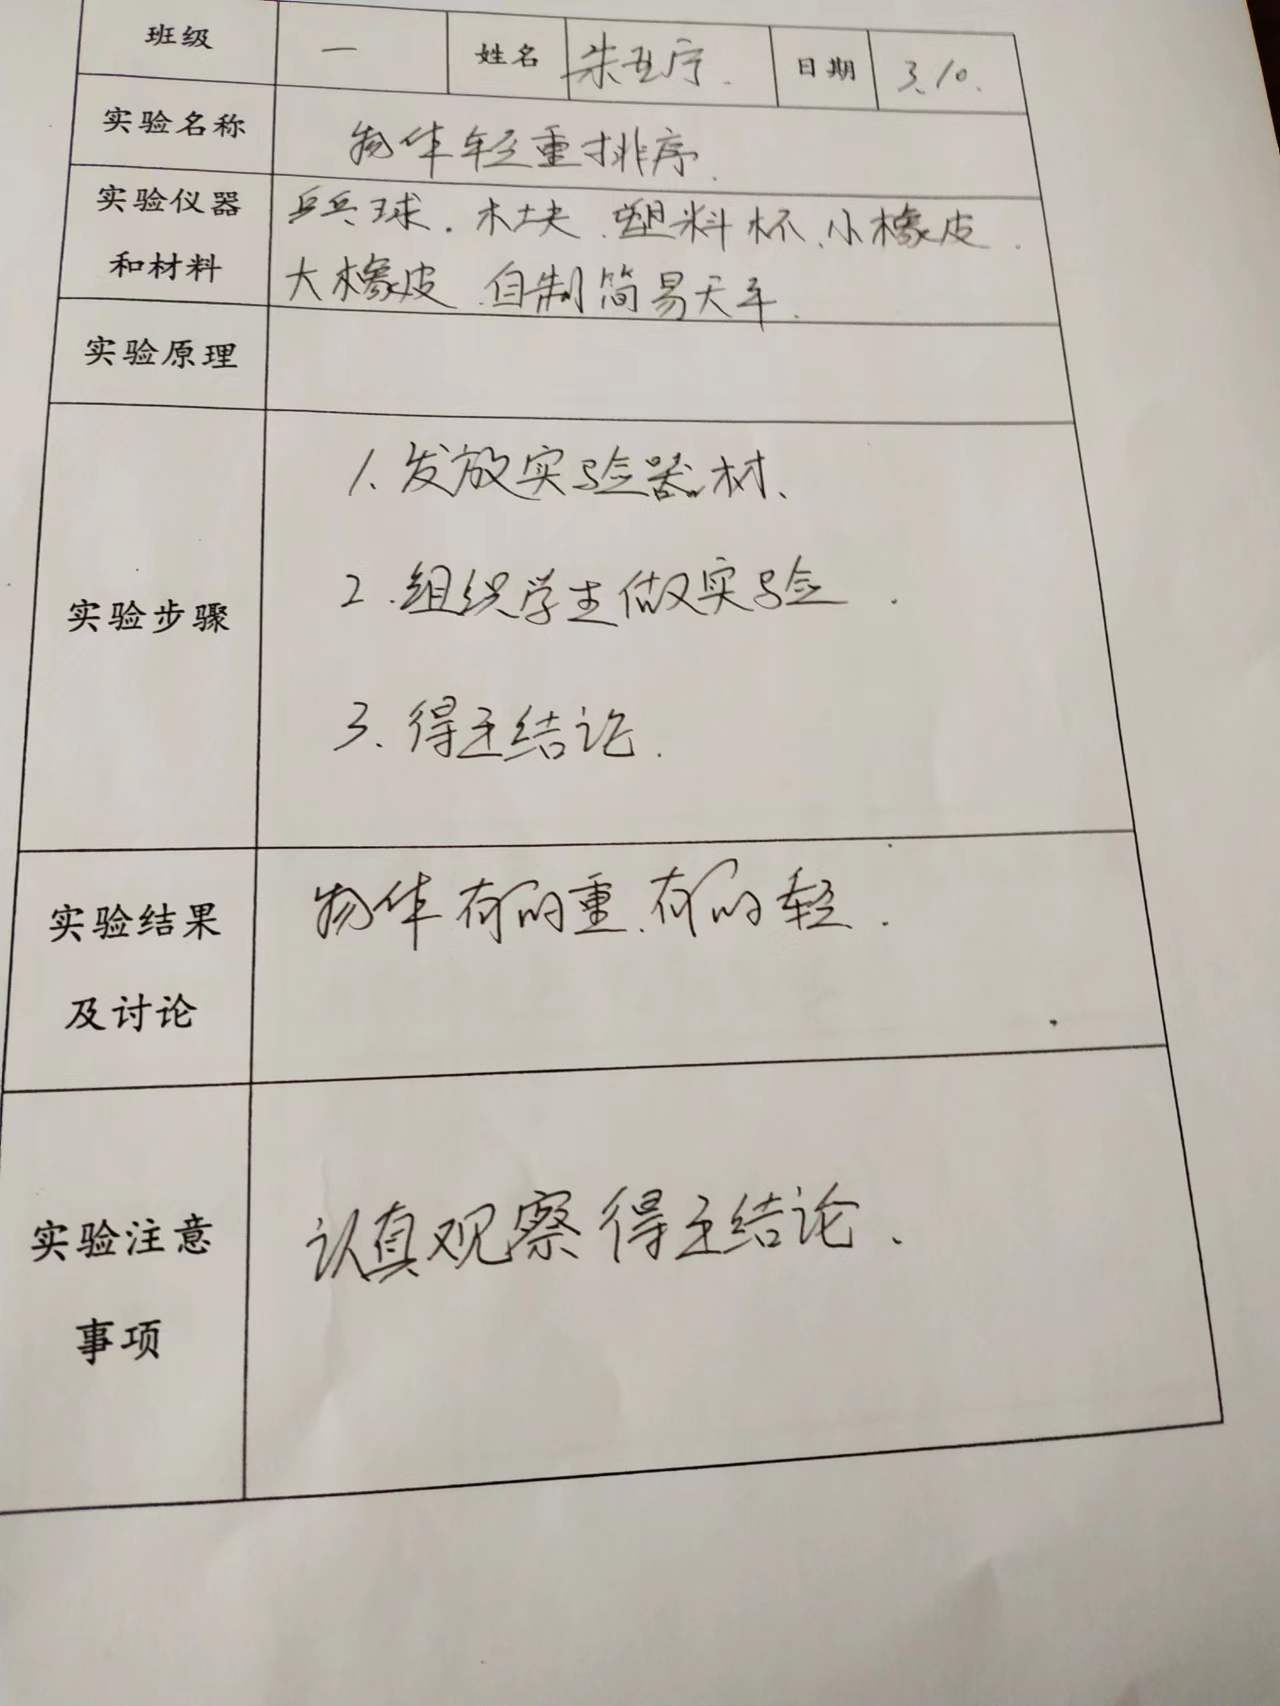 班级 一 姓名 朱亚宁. 日期 3.10.
实验名称 物体轻重排序.
实验仪器 乒乓球. 木块、塑料杯、小橡皮.
和材料 大橡皮.自制简易天平.
实验原理
1、发放实验器材、
实验步骤 2.组织学生做实验.
3、得出结论.
实验结果 物体有的重、有的轻.
及讨论
实验注意 认真观察得出结论.
事项